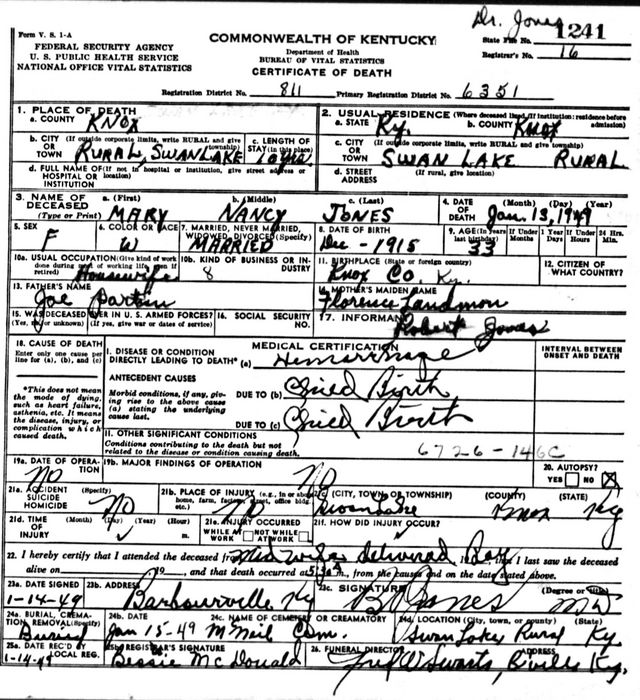 Dr. Jones
Form V. S. 1-A
FEDERAL SECURITY AGENCY
U. S. PUBLIC HEALTH SERVICE
NATIONAL OFFICE VITAL STATISTICS
COMMONWEALTH OF KENTUCKY
Department of Health
BUREAU OF VITAL STATISTICS
CERTIFICATE OF DEATH
State File No. 1241
Registrar's No. 16
Registration District No. 811 Primary Registration District No. 6351
1. PLACE OF DEATH
a. COUNTY KNOX
2. USUAL RESIDENCE (Where deceased lived. If institution: residence before admission)
a. STATE Ky. b. COUNTY Knox
b. CITY OR TOWN (If outside corporate limits, write RURAL and give township) RURAL, SWAN LAKE
c. LENGTH OF STAY (in this place) 10 yrs.
c. CITY OR TOWN (If outside corporate limits, write RURAL and give township) SWAN LAKE RURAL
d. FULL NAME OF HOSPITAL OR INSTITUTION (If not in hospital or institution, give street address or location)
d. STREET ADDRESS (If rural, give location)
3. NAME OF DECEASED (Type or Print)
a. (First) MARY b. (Middle) NANCY c. (Last) JONES
4. DATE OF DEATH (Month) (Day) (Year) Jan. 13, 1949
5. SEX F
6. COLOR OR RACE W
7. MARRIED, NEVER MARRIED, WIDOWED, DIVORCED (Specify) MARRIED
8. DATE OF BIRTH Dec - 1915
9. AGE (In years last birthday) 33 If Under 1 Year Months Days If Under 24 Hrs. Hours Min.
10a. USUAL OCCUPATION (Give kind of work done during most of working life, even if retired) Housewife
10b. KIND OF BUSINESS OR INDUSTRY 8
11. BIRTHPLACE (State or foreign country) Knox Co. Ky.
12. CITIZEN OF WHAT COUNTRY?
13. FATHER'S NAME Joe Partin
14. MOTHER'S MAIDEN NAME Florence Landmon
15. WAS DECEASED EVER IN U. S. ARMED FORCES? (Yes, no, or unknown) (If yes, give war or dates of service)
16. SOCIAL SECURITY NO.
17. INFORMANT Robert Jones
18. CAUSE OF DEATH
Enter only one cause per line for (a), (b), and (c)
MEDICAL CERTIFICATION
INTERVAL BETWEEN ONSET AND DEATH
I. DISEASE OR CONDITION DIRECTLY LEADING TO DEATH* (a) Hemorrhage
*This does not mean the mode of dying, such as heart failure, asthenia, etc. It means the disease, injury, or complication which caused death.
ANTECEDENT CAUSES
Morbid conditions, if any, giving rise to the above cause (a) stating the underlying cause last.
DUE TO (b) Child Birth
DUE TO (c) Child Birth
II. OTHER SIGNIFICANT CONDITIONS
Conditions contributing to the death but not related to the disease or condition causing death.
6726-146C
19a. DATE OF OPERATION No
19b. MAJOR FINDINGS OF OPERATION No
20. AUTOPSY? YES NO X
21a. ACCIDENT SUICIDE HOMICIDE (Specify) No
21b. PLACE OF INJURY (e.g., in or about home, farm, factory, street, office bldg. etc.) No
21c. (CITY, TOWN, OR TOWNSHIP) (COUNTY) (STATE) Knox Ky
21d. TIME OF INJURY (Month) (Day) (Year) (Hour) m.
21e. INJURY OCCURRED WHILE AT WORK NOT WHILE AT WORK
21f. HOW DID INJURY OCCUR?
22. I hereby certify that I attended the deceased from Midwife delivered Baby, that I last saw the deceased
alive on 19 , and that death occurred at m., from the causes and on the date stated above.
23a. DATE SIGNED 1-14-49
23b. ADDRESS Barbourville Ky
23c. SIGNATURE (Degree or title) Jones MD
24a. BURIAL, CREMATION, REMOVAL (Specify) Buried
24b. DATE Jan 15-49
24c. NAME OF CEMETERY OR CREAMATORY McNeil Cem.
24d. LOCATION (City, town, or county) (State) Swan Lake Rural Ky.
25a. DATE REC'D BY LOCAL REG. 1-14-49
25b. REGISTRAR'S SIGNATURE Bessie McDonald
26. FUNERAL DIRECTOR ADDRESS Swartz, B'ville Ky.